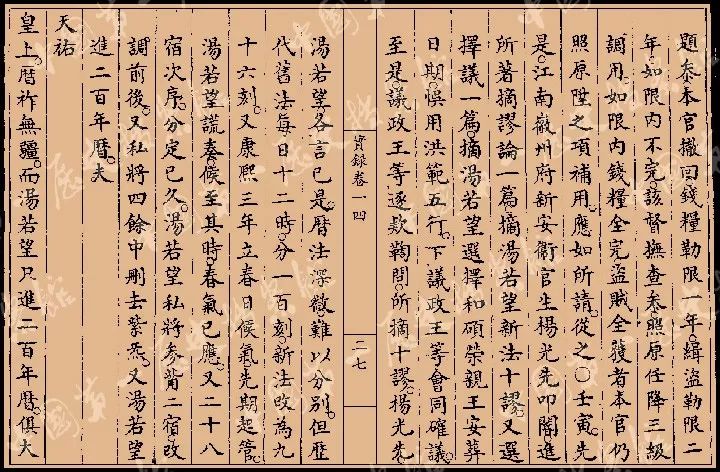 題參本官撤回錢糧勒限一年緝盜勒限二
年如限內不完該督撫查參照原任降三級
調用如限內錢糧全完盜賊全獲者本官仍
照原陞之項補用應如所請從之○壬寅先
是江南徽州府新安衞官生楊光先叩閽進
所著摘謬論一篇摘湯若望新法十謬又選
擇議一篇摘湯若望選擇和碩榮親王安葬
日期悞用洪範五行下議政王等會同確議
至是議政王等逐款鞫問所摘十謬楊光先
實錄卷一四
二七
湯若望各言已是曆法深微難以分別但歷
代舊法每日十二時分一百刻新法改為九
十六刻又康熙三年立春日候氣先期起管
湯若望謊奏候至其時春氣已應又二十八
宿次序分定已久湯若望私將參觜二宿改
調前後又私將四餘中刪去紫炁又湯若望
進二百年曆夫
天祐
皇上曆祚無疆而湯若望只進二百年曆俱大